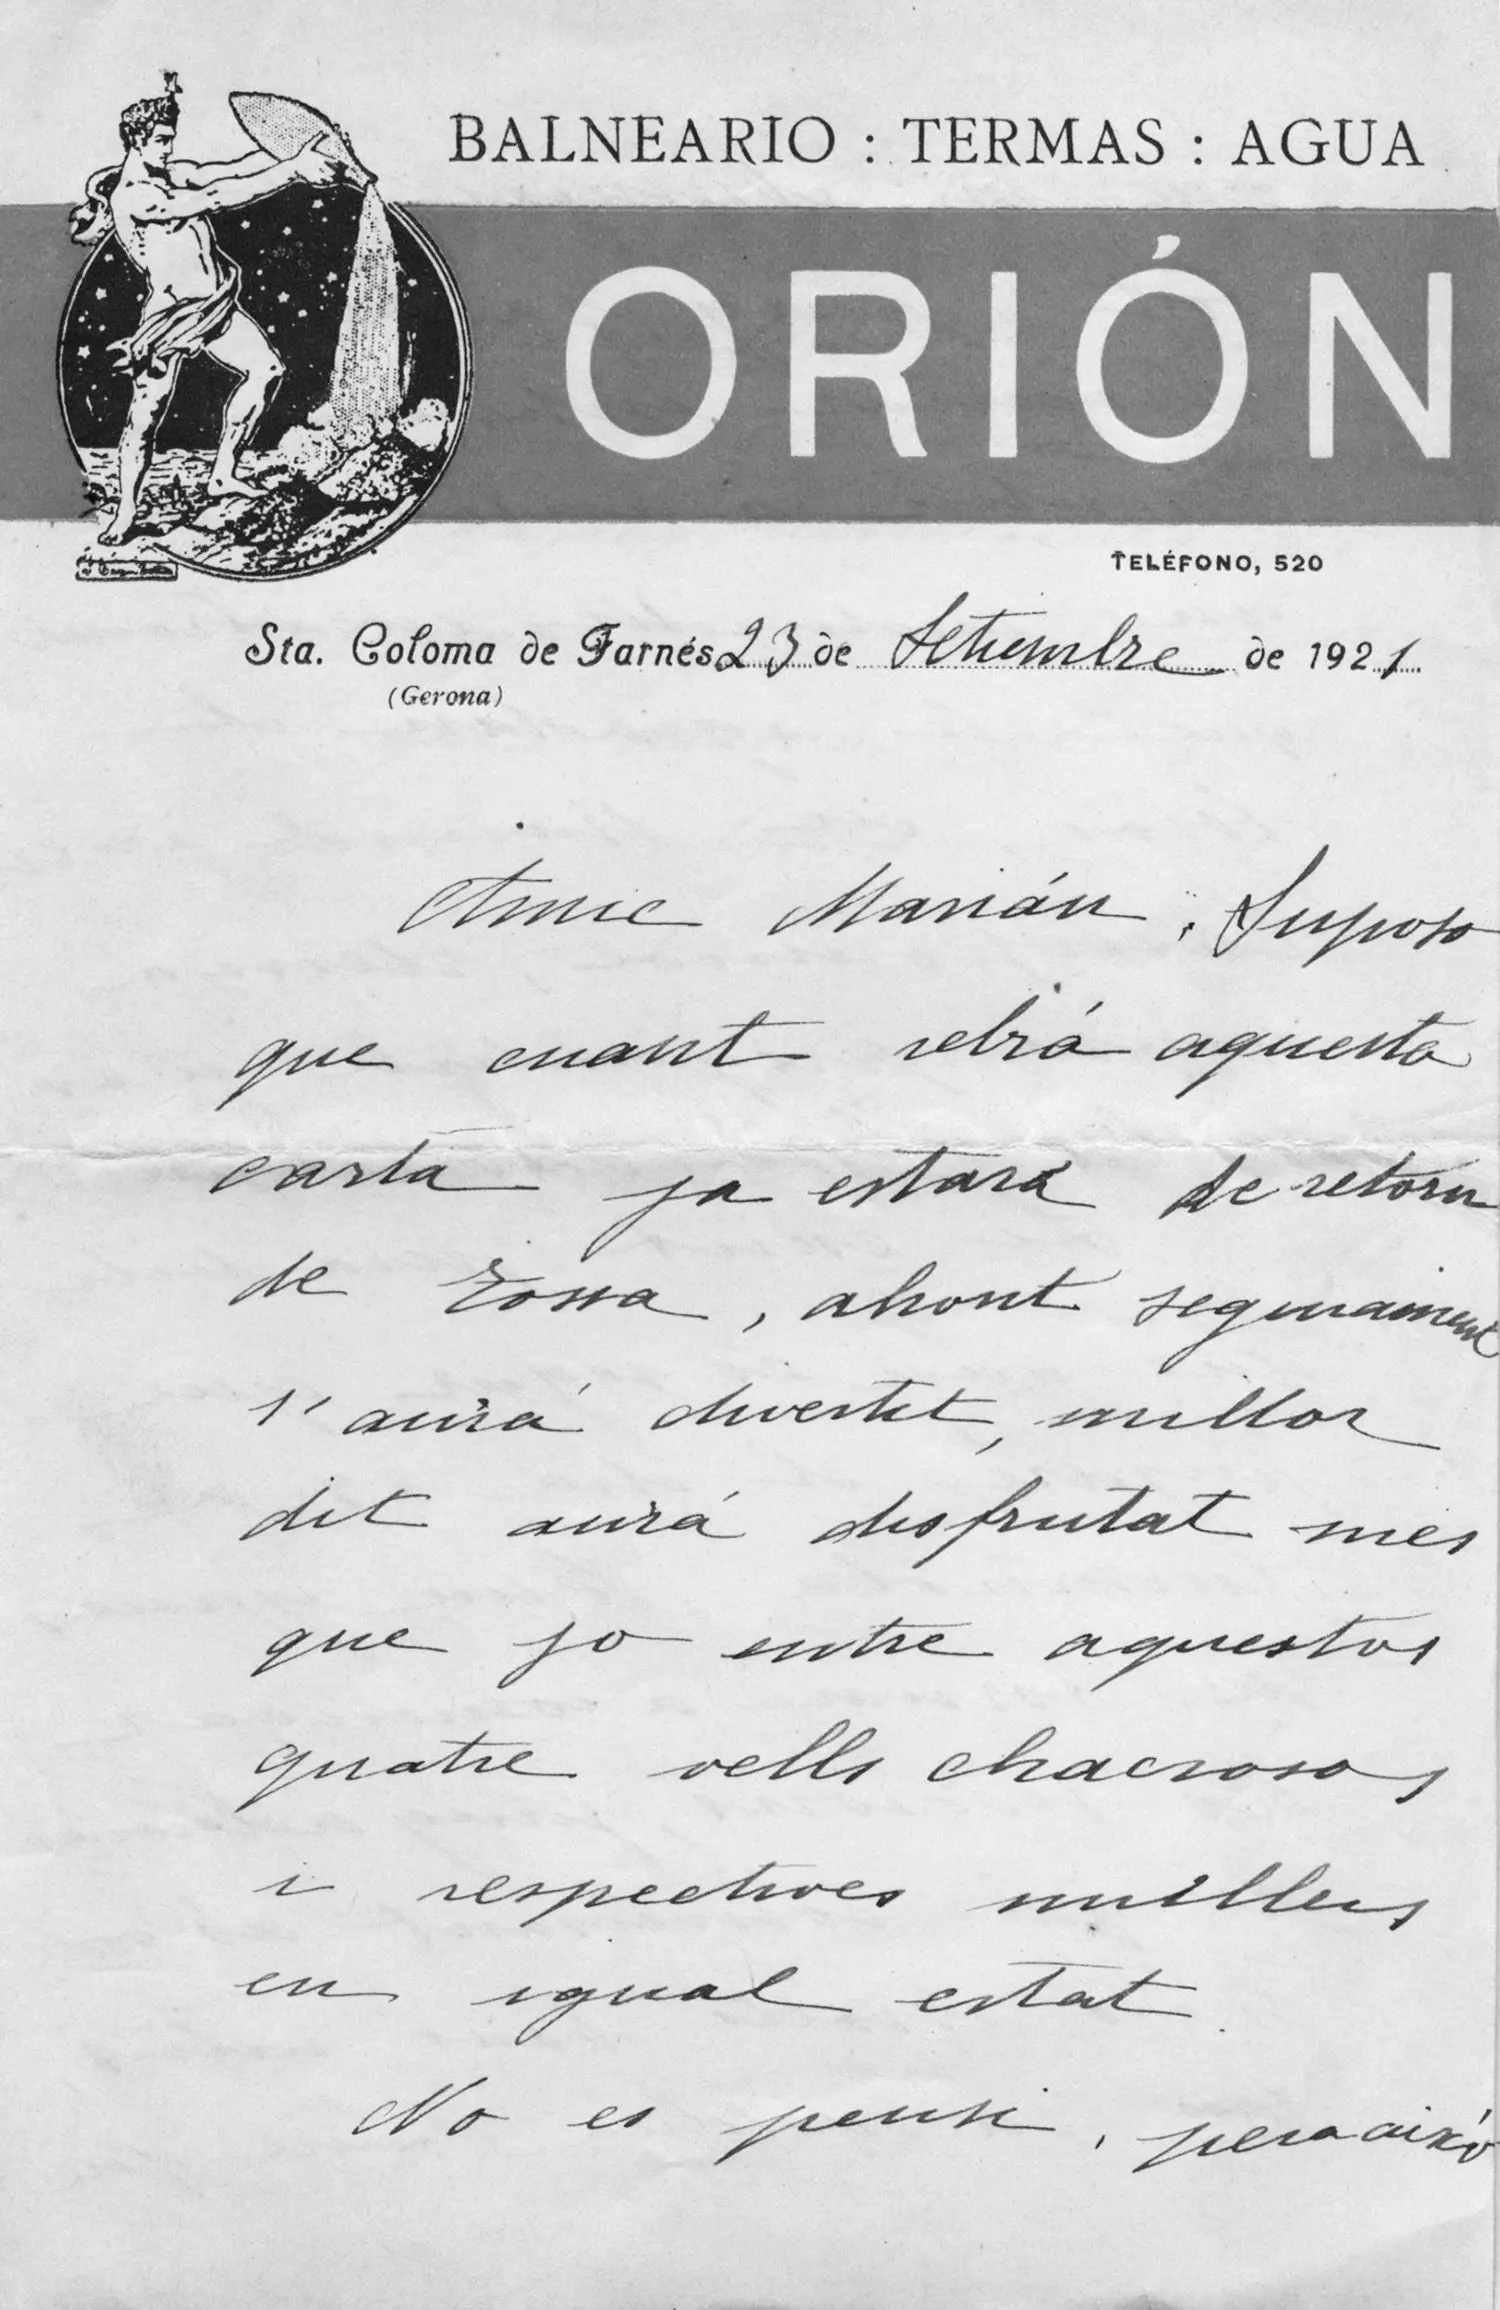 BALNEARIO : TERMAS : AGUA
ORIÓN
TELÉFONO, 520
Sta. Coloma de Farnés 23 de Setiembre de 1921
(Gerona)
Amic Marián, Suposo
que cuant rebrá aquesta
carta ja estará de retorn
de Tossa, ahont segurament
s'aurá divertit, millor
dit aurá disfrutat mes
que jo entre aquestos
quatre vells chacrosos
i respectives mullers
en igual estat.
No es pensi, pero aixó